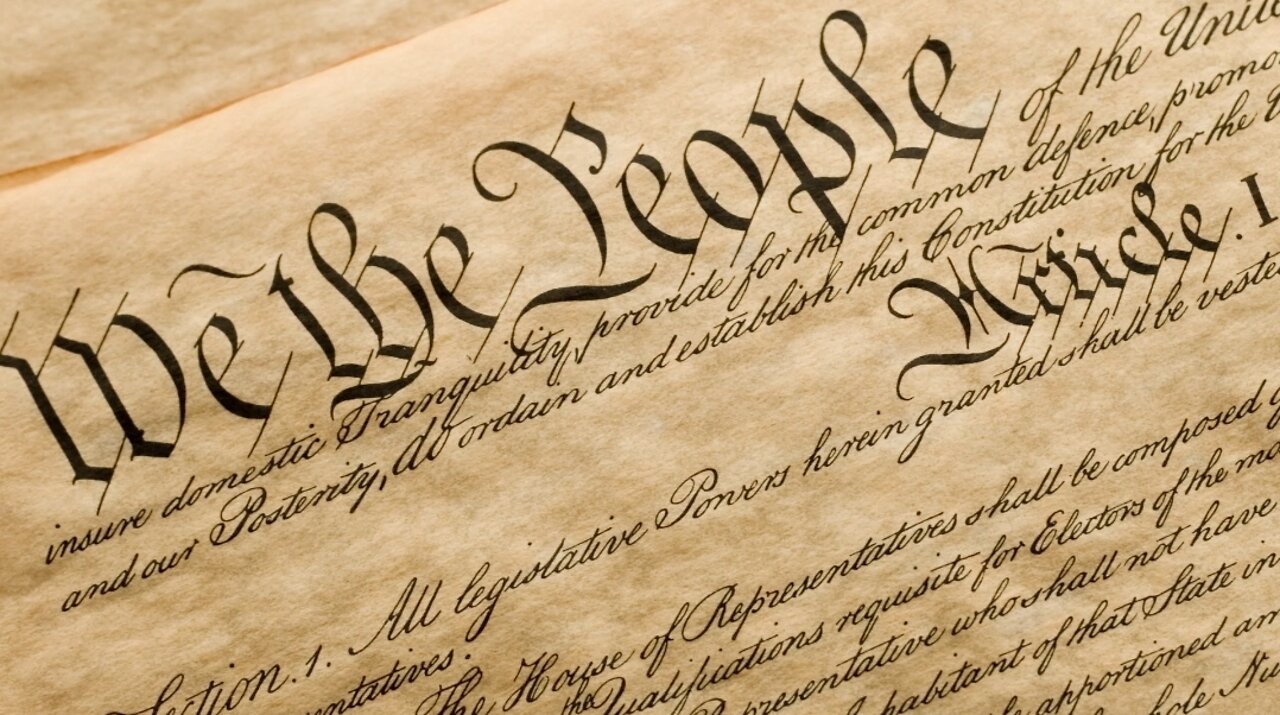 We the People of the Unite
insure domestic Tranquility, provide for the common defence, promo
and our Posterity, do ordain and establish this Constitution for the
Article. I
Section. 1. All legislative Powers herein granted shall be veste
entatives.
The House of Representatives shall be composed
the Qualifications requisite for Electors of the mo
Representative who shall not have
habitant of that State in
apportioned am
hole Nu